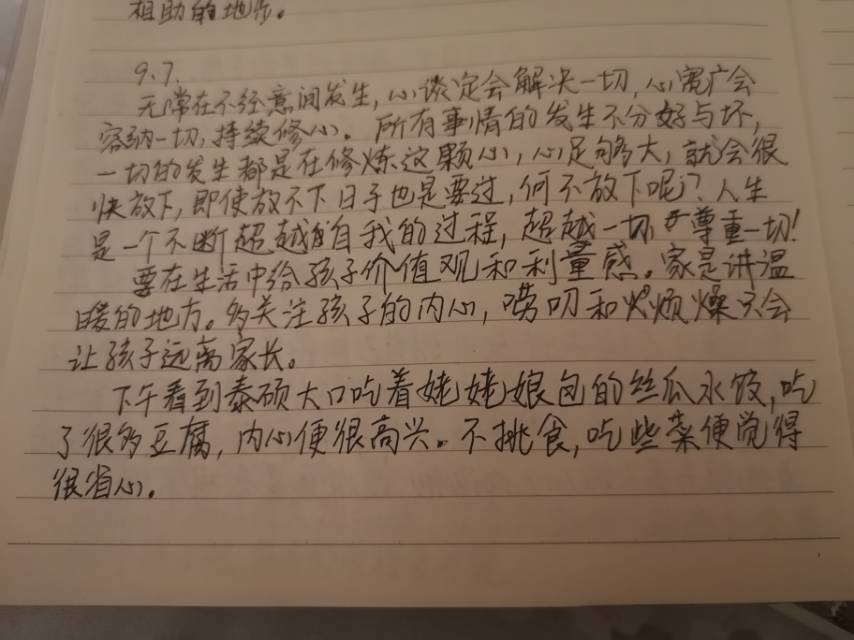 相助的地方。
9.7.
无常在不经意间发生,心谈定会解决一切,心宽广会
容纳一切,持续修心。所有事情的发生不分好与坏,
一切的发生都是在修炼这颗心,心足够大,就会很
快放下,即使放不下日子也是要过,何不放下呢?人生
是一个不断超越自我的过程,超越一切,尊重一切!
要在生活中给孩子价值观和利量感。家是讲温
暖的地方。多关注孩子的内心,唠叨和烦燥只会
让孩子远离家长。
下午看到泰硕大口吃着姥姥娘包的丝瓜水饺,吃
了很多豆腐,内心便很高兴。不挑食,吃些菜便觉得
很省心。